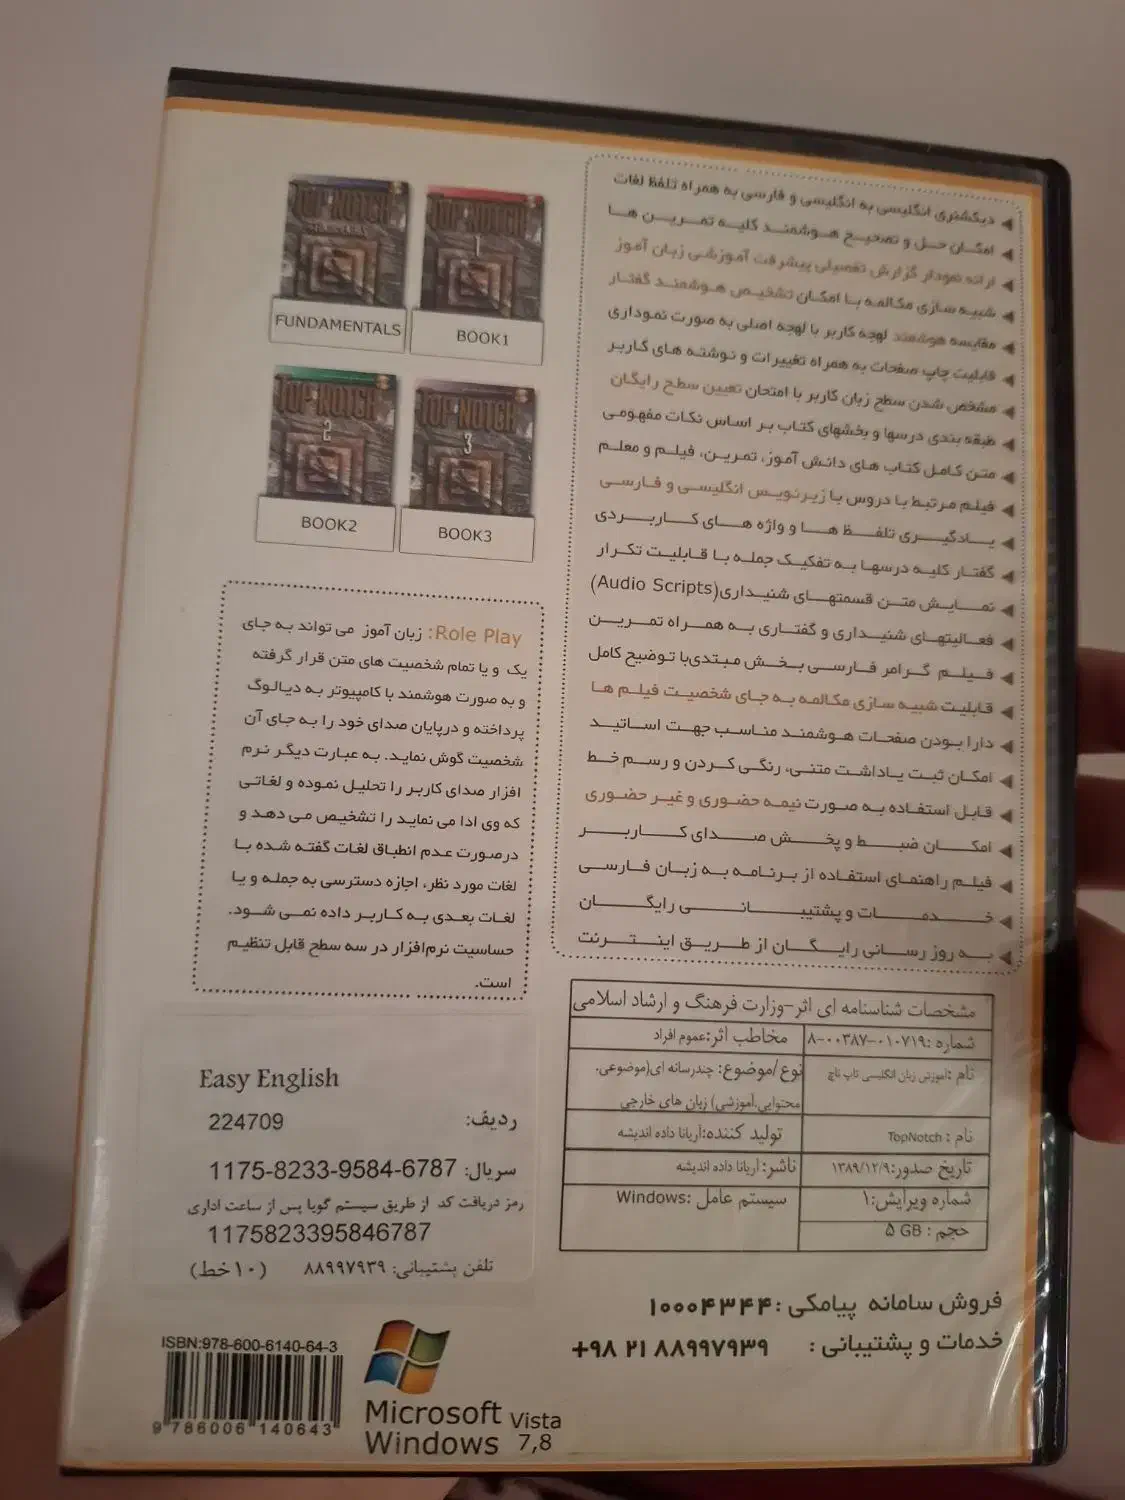 ◀ دیکشنری انگلیسی به انگلیسی و فارسی به همراه تلفظ لغات
◀ امکان حل و تصحیح هوشمند کلیه تمرین ها
◀ ارائه نمودار گزارش تفصیلی پیشرفت آموزشی زبان آموز
◀ شبیه سازی مکالمه با امکان تشخیص هوشمند گفتار
◀ مقایسه هوشمند لهجه کاربر با لهجه اصلی به صورت نموداری
◀ قابلیت چاپ صفحات به همراه تغییرات و نوشته های کاربر
◀ مشخص شدن سطح زبان کاربر با امتحان تعیین سطح رایگان
◀ طبقه بندی درسها و بخشهای کتاب بر اساس نکات مفهومی
◀ متن کامل کتاب های دانش آموز، تمرین، فیلم و معلم
◀ فیلم مرتبط با دروس با زیرنویس انگلیسی و فارسی
◀ یادگیری تلفظ ها و واژه های کاربردی
◀ گفتار کلیه درسها به تفکیک جمله با قابلیت تکرار
◀ نمایش متن قسمتهای شنیداری(Audio Scripts)
◀ فعالیتهای شنیداری و گفتاری به همراه تمرین
◀ فیلم گرامر فارسی بخش مبتدی‌با توضیح کامل
◀ قابلیت شبیه سازی مکالمه به جای شخصیت فیلم ها
◀ دارا بودن صفحات هوشمند مناسب جهت اساتید
◀ امکان ثبت یاداشت متنی، رنگی کردن و رسم خط
◀ قابل استفاده به صورت نیمه حضوری و غیر حضوری
◀ امکان ضبط و پخش صدای کاربر
◀ فیلم راهنمای استفاده از برنامه به زبان فارسی
◀ خدمات و پشتیبانی رایگان
◀ به روز رسانی رایگان از طریق اینترنت
TOP NOTCH
FUNDAMENTALS
TOP NOTCH
1
BOOK1
TOP NOTCH
2
BOOK2
TOP NOTCH
3
BOOK3
Role Play: زبان آموز می تواند به جای
یک و یا تمام شخصیت های متن قرار گرفته
و به صورت هوشمند با کامپیوتر به دیالوگ
پرداخته و درپایان صدای خود را به جای آن
شخصیت گوش نماید. به عبارت دیگر نرم
افزار صدای کاربر را تحلیل نموده و لغاتی
که وی ادا می نماید را تشخیص می دهد و
درصورت عدم انطباق لغات گفته شده با
لغات مورد نظر، اجازه دسترسی به جمله و یا
لغات بعدی به کاربر داده نمی شود.
حساسیت نرم‌افزار در سه سطح قابل تنظیم
است.
مشخصات شناسنامه ای اثر-وزارت فرهنگ و ارشاد اسلامی
شماره :۸-۰۰۳۸۷-۰۱۰۷۱۹
مخاطب اثر:عموم افراد
نام :آموزش زبان انگلیسی تاپ ناچ
نوع /موضوع: چندرسانه ای(موضوعی،
محتوایی،آموزشی) زبان های خارجی
نام : TopNotch
تولید کننده:آریانا داده اندیشه
تاریخ صدور:۱۳۸۹/۱۲/۹
ناشر:آریانا داده اندیشه
شماره ویرایش:۱
سیستم عامل :Windows
حجم : ۵ GB
Easy English
ردیف: 224709
سریال: 1175-8233-9584-6787
رمز دریافت کد از طریق سیستم گویا پس از ساعت اداری
1175823395846787
تلفن پشتیبانی: ۸۸۹۹۷۹۳۹ (۱۰خط)
فروش سامانه پیامکی :۱۰۰۰۴۳۴۴
خدمات و پشتیبانی : +۹۸ ۲۱ ۸۸۹۹۷۹۳۹
ISBN:978-600-6140-64-3
9 786006 140643
Microsoft Windows Vista 7,8